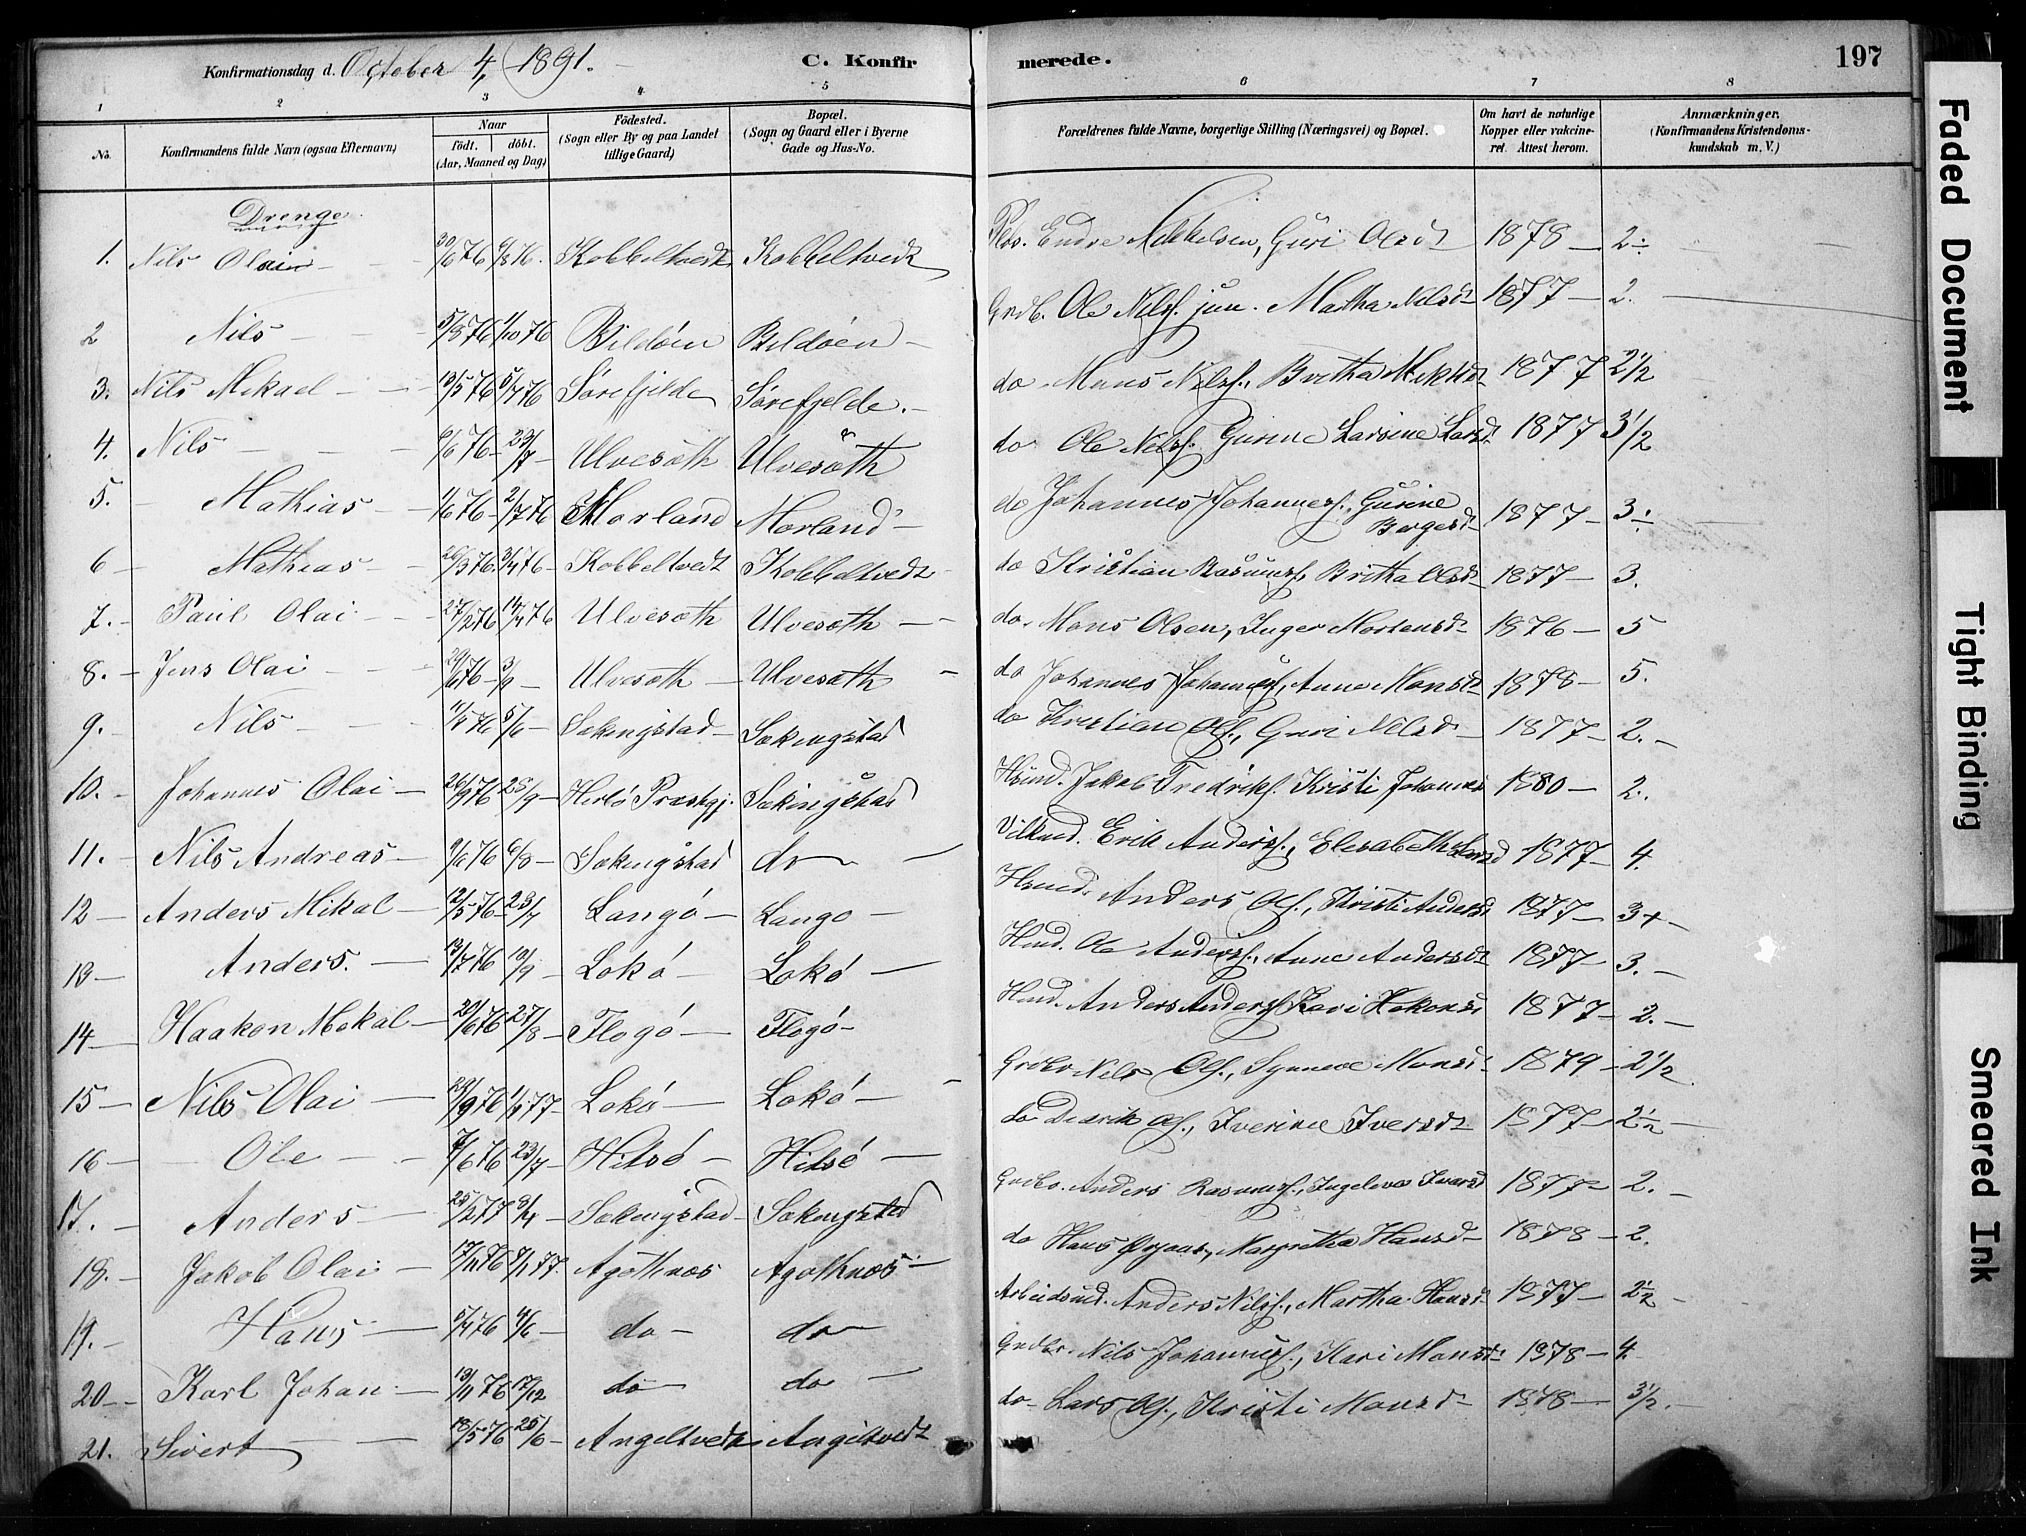 Konfirmationsdag d. October 4, 1891.
C. Konfirmerede.
197
1 2 3 4 5 6 7 8
No.
Konfirmandens fulde Navn (ogsaa Efternavn)
Naar
födt. döbt.
(Aar, Maaned og Dag)
Födested.
(Sogn eller By og paa Landet
tillige Gaard)
Bopæl.
(Sogn og Gaard eller i Byerne
Gade og Hus-No.
Forældrenes fulde Navne, borgerlige Stilling (Næringsvei) og Bopæl.
Om havt de naturlige
Kopper eller vakcine-
ret. Attest herom.
Anmærkninger.
(Konfirmandens Kristendoms-
kundskab m. V.)
Drenge
1. Nils Olai 30/6 76 6/8 76. Kobbeltvedt Kobbeltvedt Endre Mikkelsen, Guri Olsdt 1878 2÷
2 Nils 5/8 76 1/10 76 Bildöen Bildöen Grdb. Ole Nilss. jun. Martha Nilsdt 1877 2.
3. Nils Mikael 13/5 76 5/7 76 Sörefjelde Sörefjelde. do Mans Nilss., Britha Miklsdt 1877 2½
4. Nils 76 23/7 Ulvesæth Ulvesæth do Ole Nilss. Gurine Larsine Larsd. 1877 3½
5. Mathias 1/6 76 2/7 76 Morland Morland do Johannes Johanness., Gurine
Børgesdt 1877 3÷
6 Mathias 26/3 76. 76 Kobbeltvedt Kobbeltvedt do Kristian Rasmuss. Britha Olsdt 1877 3.
7. Paul Olai 27/2 76 17/4 76 Ulvesæth Ulvesæth do. Mons Olsen, Inger Mortensdt 1876 5
8. Jens Olai 29/6 76 3/9 Ulvesæth Ulvesæth do Johannes Johanness, Anne Monsdt 1878 5.
9. Nils 76 5/6 Sekingstad Sekingstad do Kristian Ols., Guri Nilsdt 1877 2.
10. Johannes Olai 76 Herlö Præstgj. Sekingstad Husmd. Jakob Fredriks. Kristi Johannes 1880 2.
11. Nils Andreas 9/6 76 6/8 Sekingstad do Erik Anderss., Elisabeth Larsd 1877 4.
12 Anders Mikal 12/5 76 23/7 Langö Langö Husmd. Anders Ols., Kristi Andersd 1877 3+
13 Anders. 13/7 76 10/9 Lokö Lokö Husmd. Ole Anderss., Anne Andersdt 1877 3.
14 Haakon Mikal 20/6 76 27/8 Flogö Flogö Husmd. Anders Anderss Kari Hakonsd 1877 2.
15 Nils Olai 29/9 76 77 Lokö Lokö Grdbr Nils Ols., Synneve Monsdt 1879 2½
16 Ole 7/6 76 23/7 Hitsö Hitsö do Ols., Iverine Iversdt 1877 2½
17. Anders 25/2 77 8/4 Sekingstad Sekingstad Grdbr. Anders Rasmuss., Ingeleva Ivarsd 1877 2.
18. Jakob Olai 17/11 76 77. Agothnes Agothnes do Hans Ørjans, Margretha Hansd 1878 2.
19. Hans 5/4 76 4/6 do do Arbeidsmd. Anders Nilss., Martha Hansd 1877 2½
20 Karl Johan 13/11 76 17/12 do do Grdbr. Nils Johanness., Kari Monsdt 1878 4.
21. Sivert 18/5 76 25/6 Angeltvedt Angeltvedt do Lars Ols., Kristi Monsd 1878 3½.
Faded Document
Tight Binding
Smeared Ink